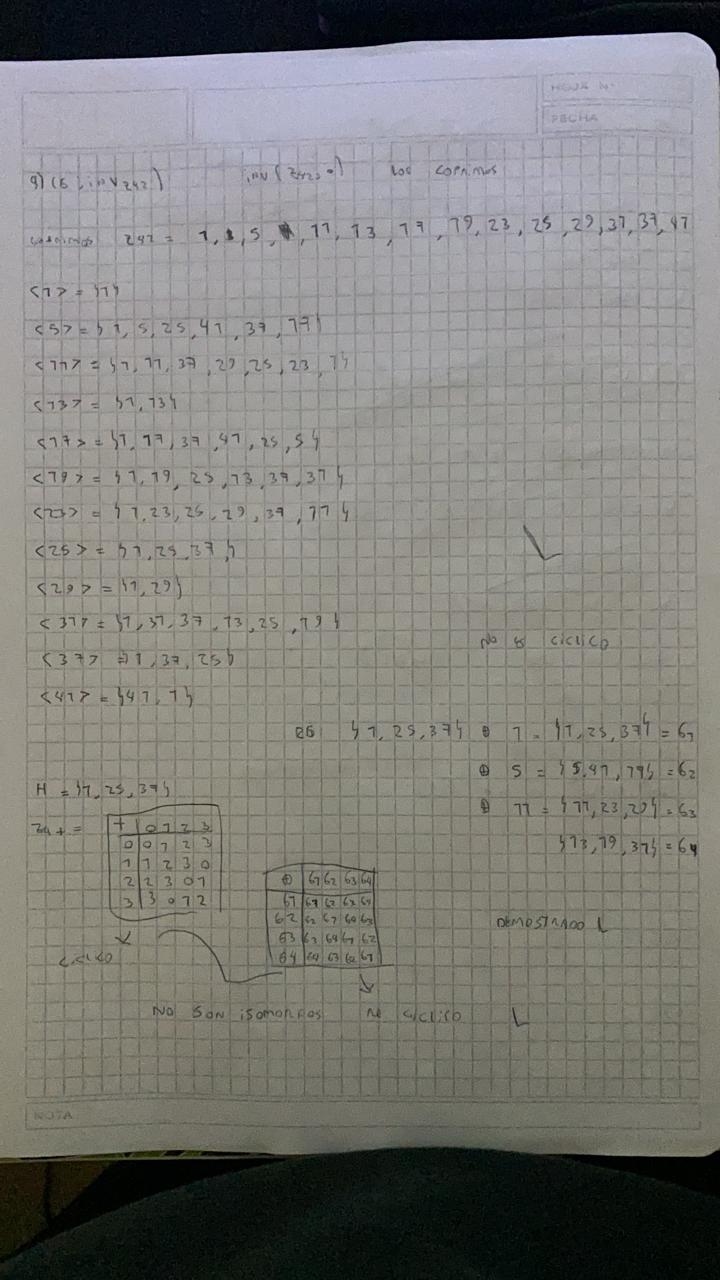 HOJA N°
FECHA
9) (G inv Z42) inv (Z42, •) los coprimos
coprimos Z42 = 1, 5, 11, 13, 17, 19, 23, 25, 29, 31, 37, 41
<1> = {1}
<5> = {1, 5, 25, 41, 37, 17}
<11> = {1, 11, 37, 29, 25, 23, }
<13> = {1, 13}
<17> = {1, 17, 37, 41, 25, 5}
<19> = {1, 19, 25, 13, 37, 31}
<23> = {1, 23, 25, 29, 37, 11}
<25> = {1, 25, 37,}
<29> = {1, 29}
<31> = {1, 31, 37, 13, 25, 19}
No es ciclico
<37> = 1, 37, 25}
<41> = {41, 1}
{1, 25, 37} ⊕ 1 = {1, 25, 37} = G1
⊕ 5 = {5, 41, 17} = G2
H = {1, 25, 37}
⊕ 11 = {11, 23, 29} = G3
{13, 19, 31} = G4
Z4 + =
+ 0 1 2 3
0 0 1 2 3
1 1 2 3 0
2 2 3 0 1
3 3 0 1 2
⊕ G1 G2 G3 G4
G1 G1 G2 G3 G4
G2 G2 G1 G4 G3
G3 G3 G4 G1 G2
G4 G4 G3 G2 G1
DEMOSTRADO
ciclico
No son isomorfos no ciclico
NOTA